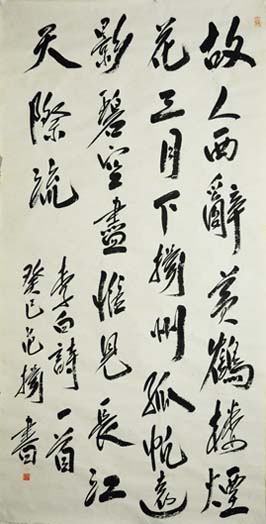 故人西辭黃鶴樓煙
花三月下揚州孤帆遠
影碧空盡惟見長江
天際流
李白詩一首
癸巳范揚書